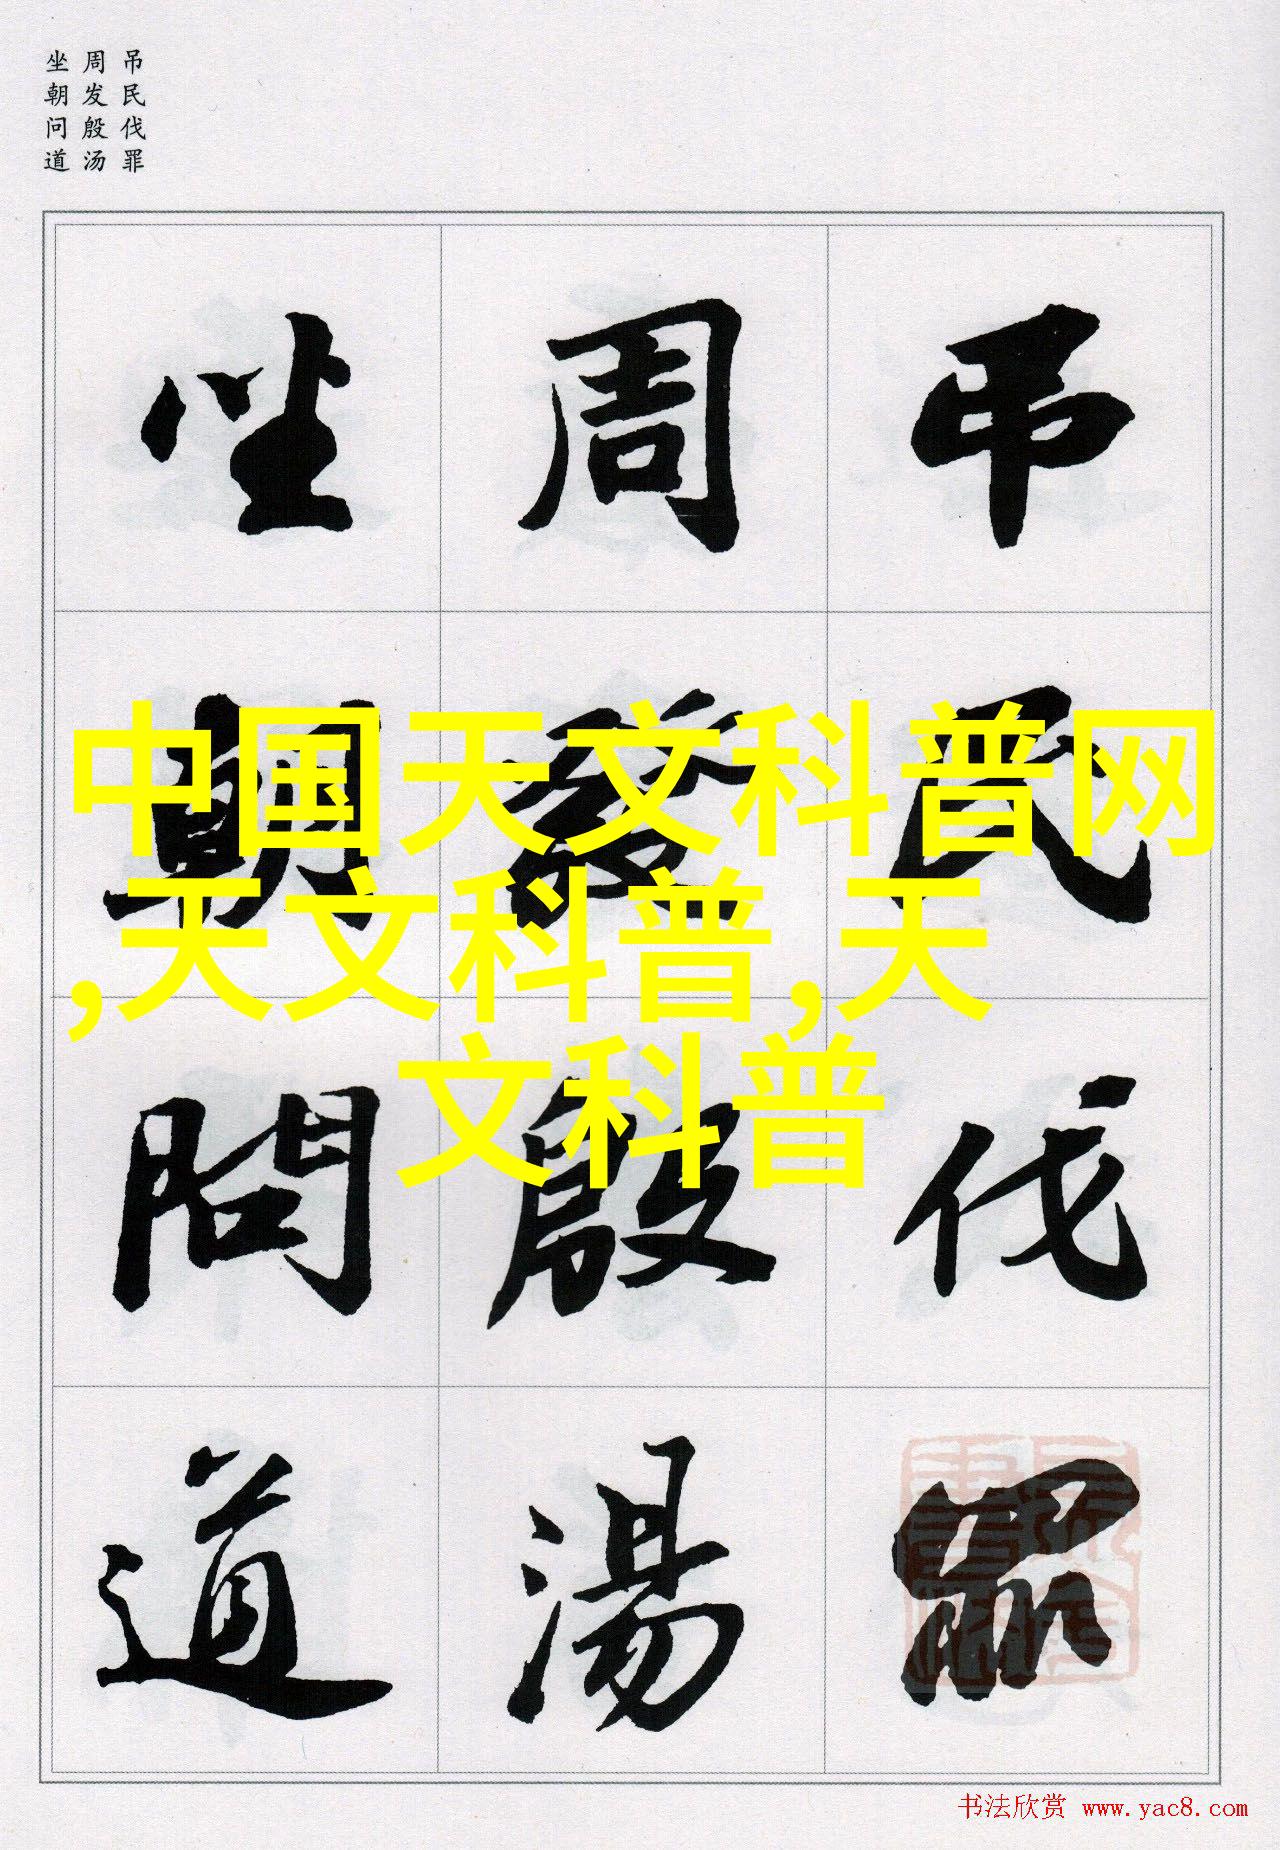 吊民伐罪
周发殷汤
坐朝问道
吊民伐罪
周發殷湯
坐朝問道
中国天文科普网
,天文科普,天
文科普
书法欣赏 www.yac8.com